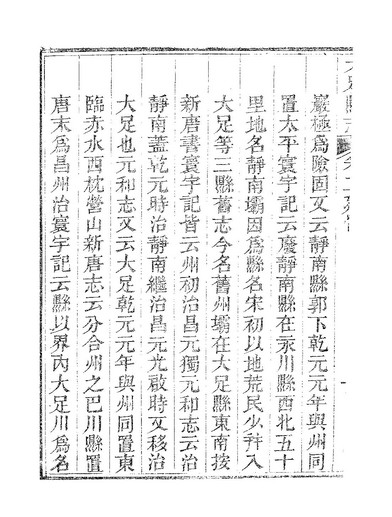 大足縣志
巖極爲險固又云靜南縣郭下乾元元年與州同
置太平寰宇記云廢靜南縣在永川縣西北五十
里地名靜南壩因爲縣名宋初以地荒民少幷入
大足等三縣舊志今名舊州壩在大足縣東南按
新唐書寰宇記皆云州初治昌元獨元和志云治
靜南蓋乾元時治靜南繼治昌元光啟時又移治
大足也元和志又云大足乾元元年與州同置東
臨赤水西枕營山新唐志云分合州之巴川縣置
唐末爲昌州治寰宇記云縣以界內大足川爲名